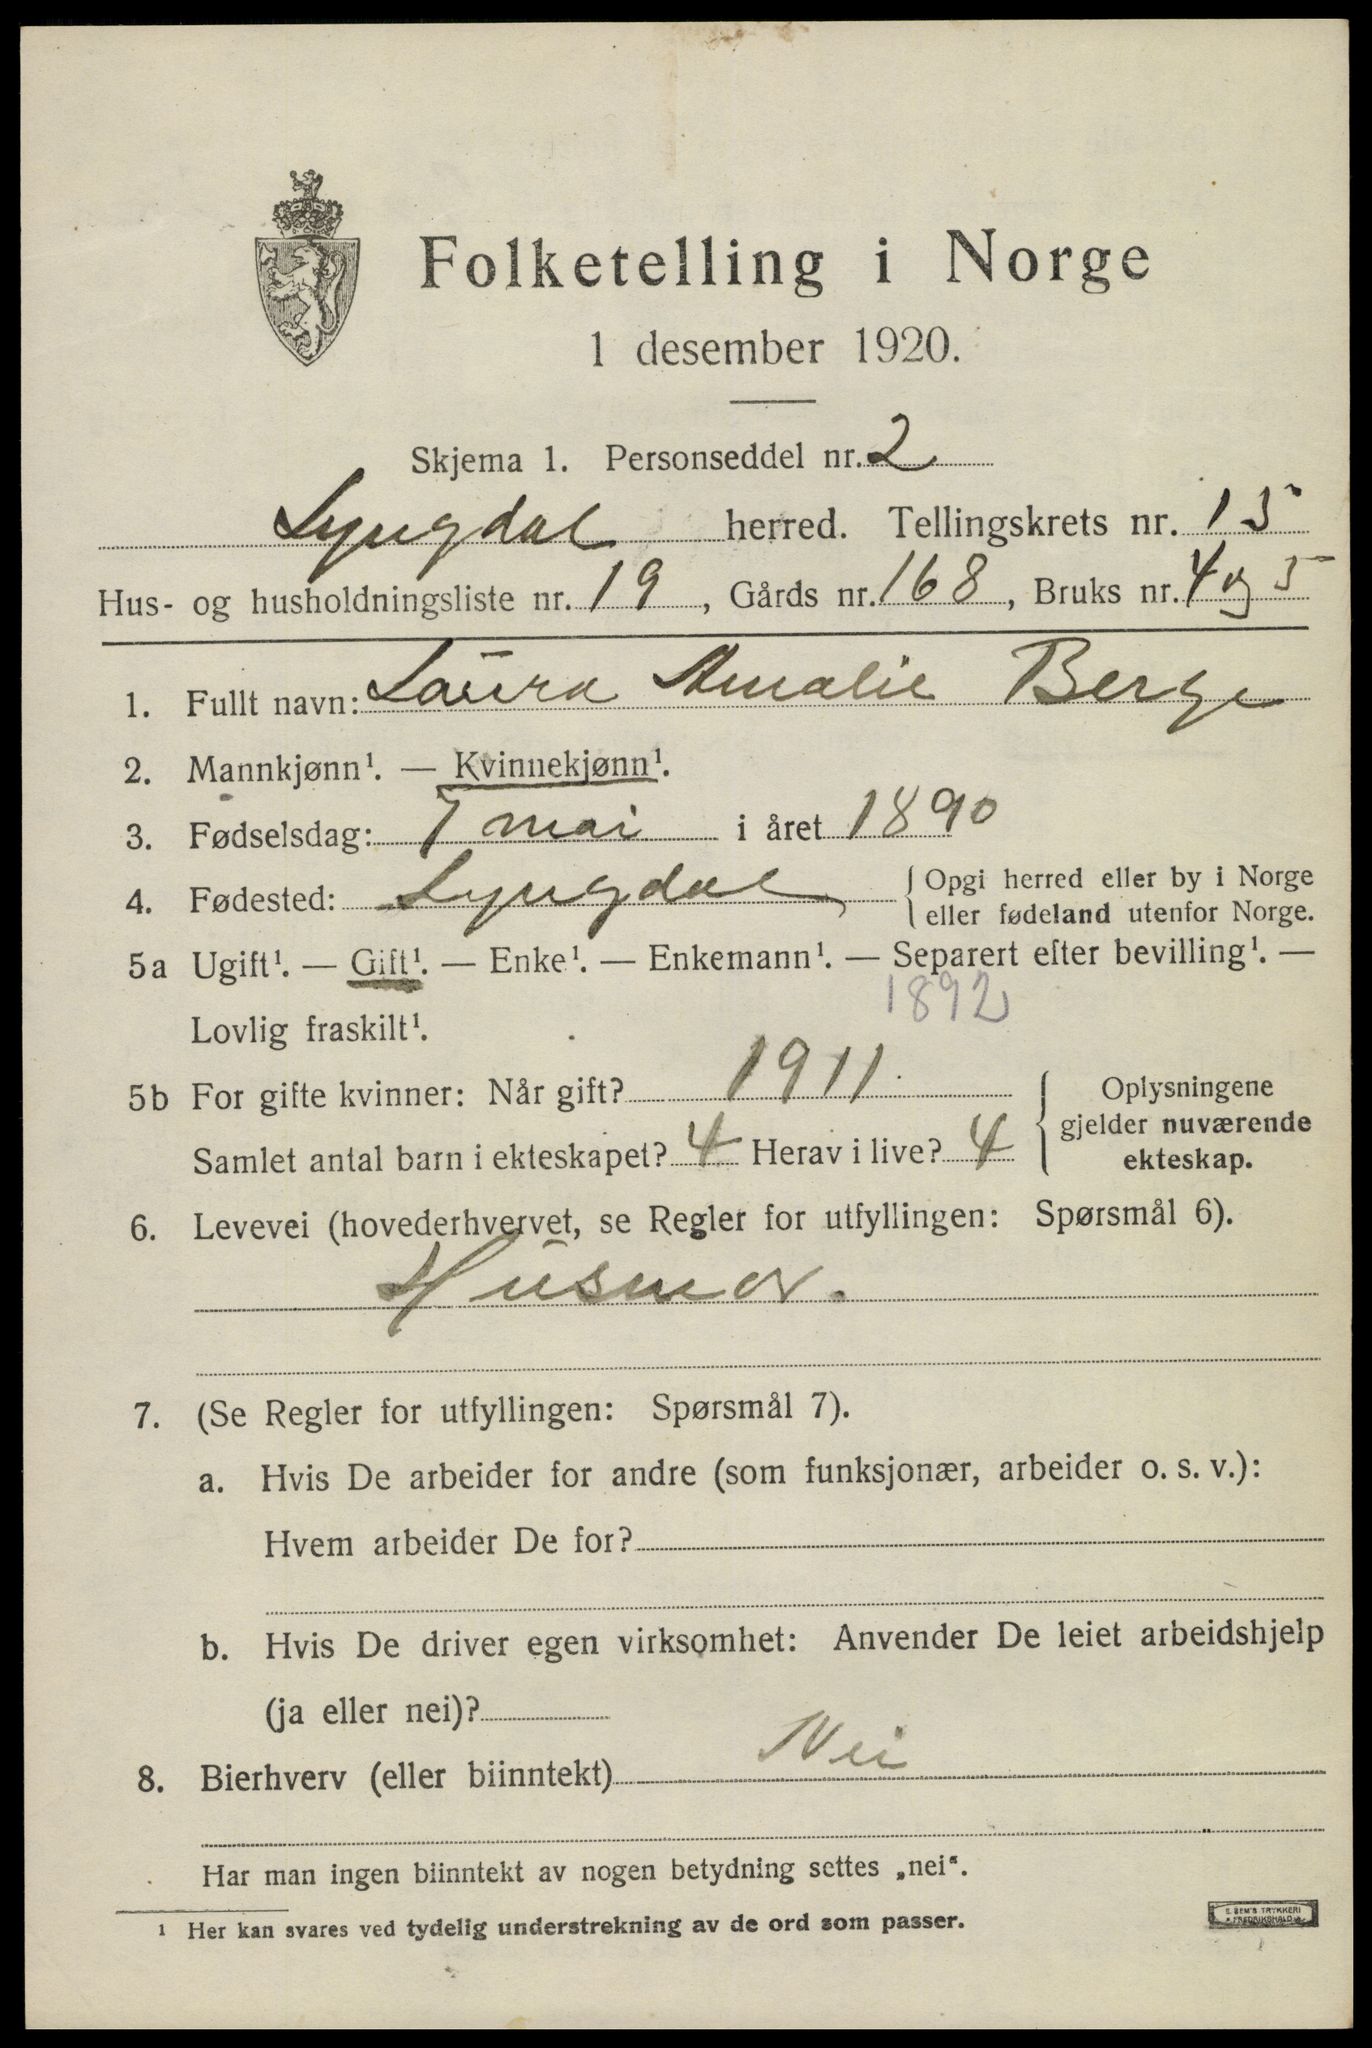 Folketelling i Norge
1 desember 1920.
Skjema 1. Personseddel nr. 2
Lyngdal herred. Tellingskrets nr. 15
Hus- og husholdningsliste nr. 19, Gårds nr. 168, Bruks nr. 4 og 5
1. Fullt navn: Laura Amalie Berge
2. Mannkjønn¹. — Kvinnekjønn¹.
3. Fødselsdag: 7 mai i året 1890
4. Fødested: Lyngdal { Opgi herred eller by i Norge
eller fødeland utenfor Norge.
5a Ugift¹. — Gift¹. — Enke¹. — Enkemann¹. — Separert efter bevilling¹. —
1892
Lovlig fraskilt¹.
5b For gifte kvinner: Når gift? 1911. { Oplysningene
gjelder nuværende
Samlet antal barn i ekteskapet? 4 Herav i live? 4 ekteskap.
6. Levevei (hovederhvervet, se Regler for utfyllingen: Spørsmål 6).
Husmor.
7. (Se Regler for utfyllingen: Spørsmål 7).
a. Hvis De arbeider for andre (som funksjonær, arbeider o. s. v.):
Hvem arbeider De for?
b. Hvis De driver egen virksomhet: Anvender De leiet arbeidshjelp
(ja eller nei)?
8. Bierhverv (eller biinntekt) Nei
Har man ingen biinntekt av nogen betydning settes „nei“.
¹ Her kan svares ved tydelig understrekning av de ord som passer.
E. SEM'S TRYKKERI
FREDRIKSHALD